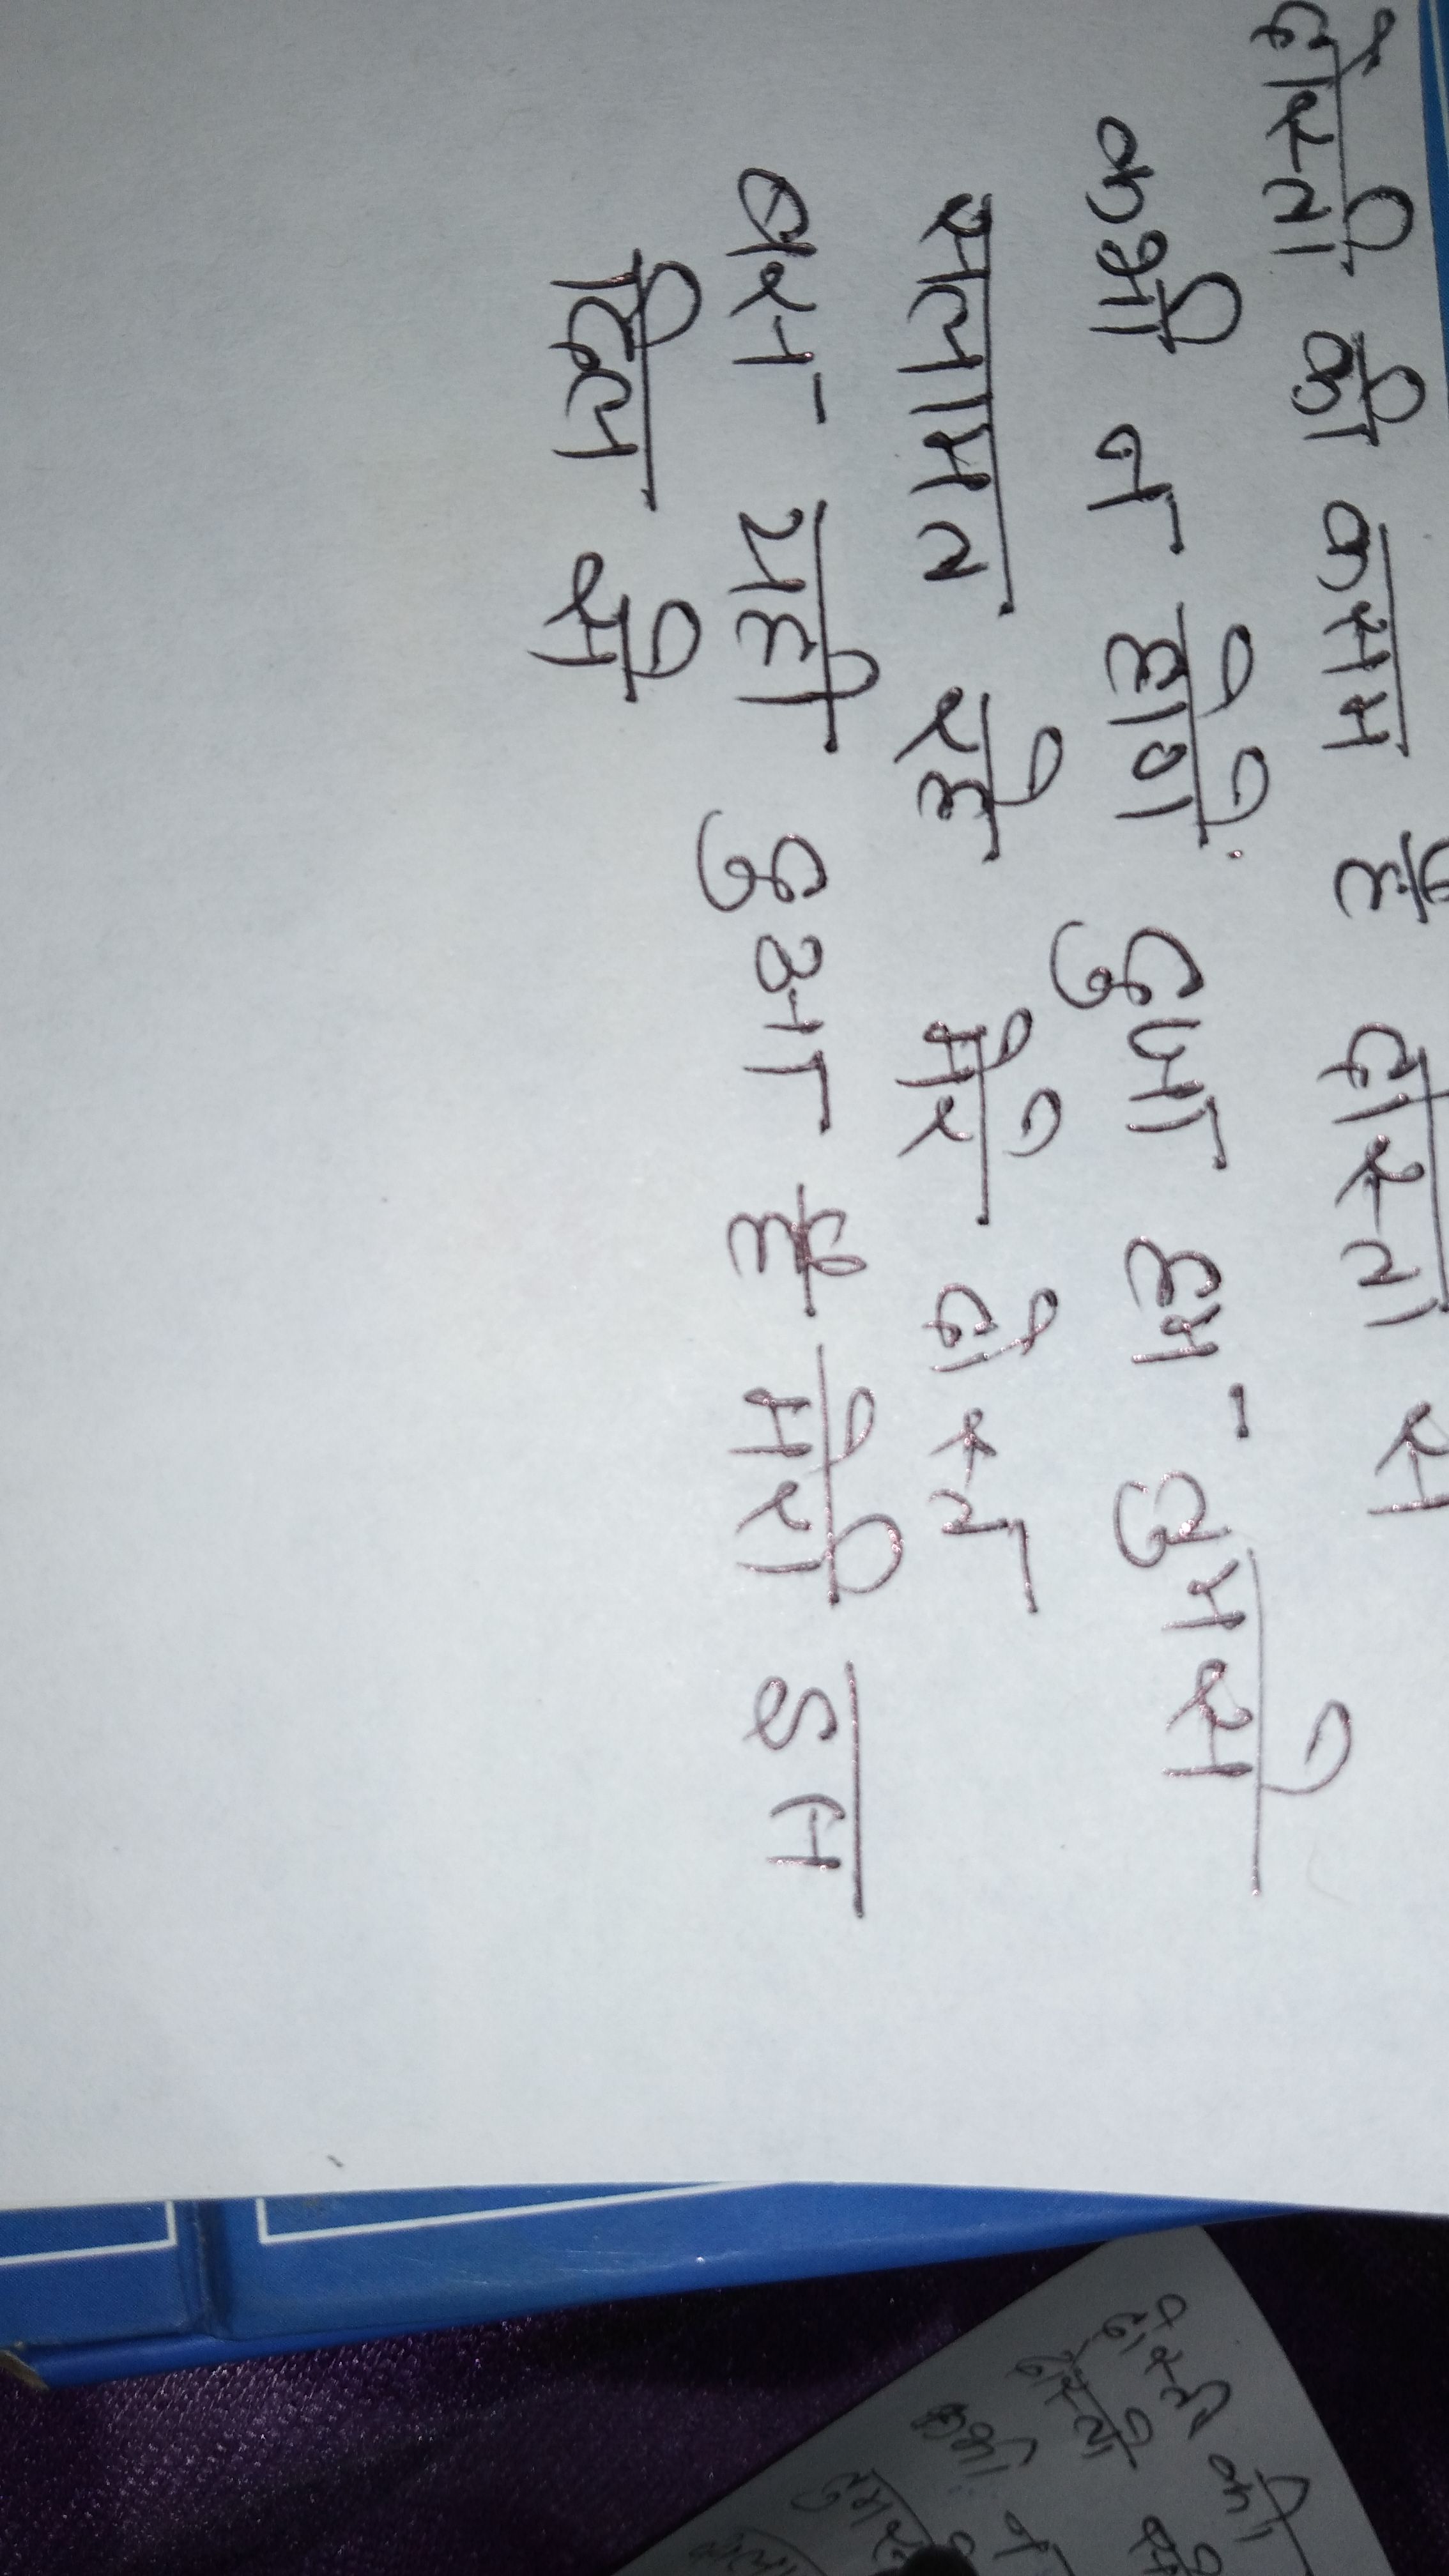 दोस्ती की कसम है दोस्तो स
कभी न होगे दुखा हम तुमसे
सलामत रहे मेरे दोस्त
बस यही दुआ है मेरी इस
दिल से
दोस्तो की
दोस्ती
कभी न